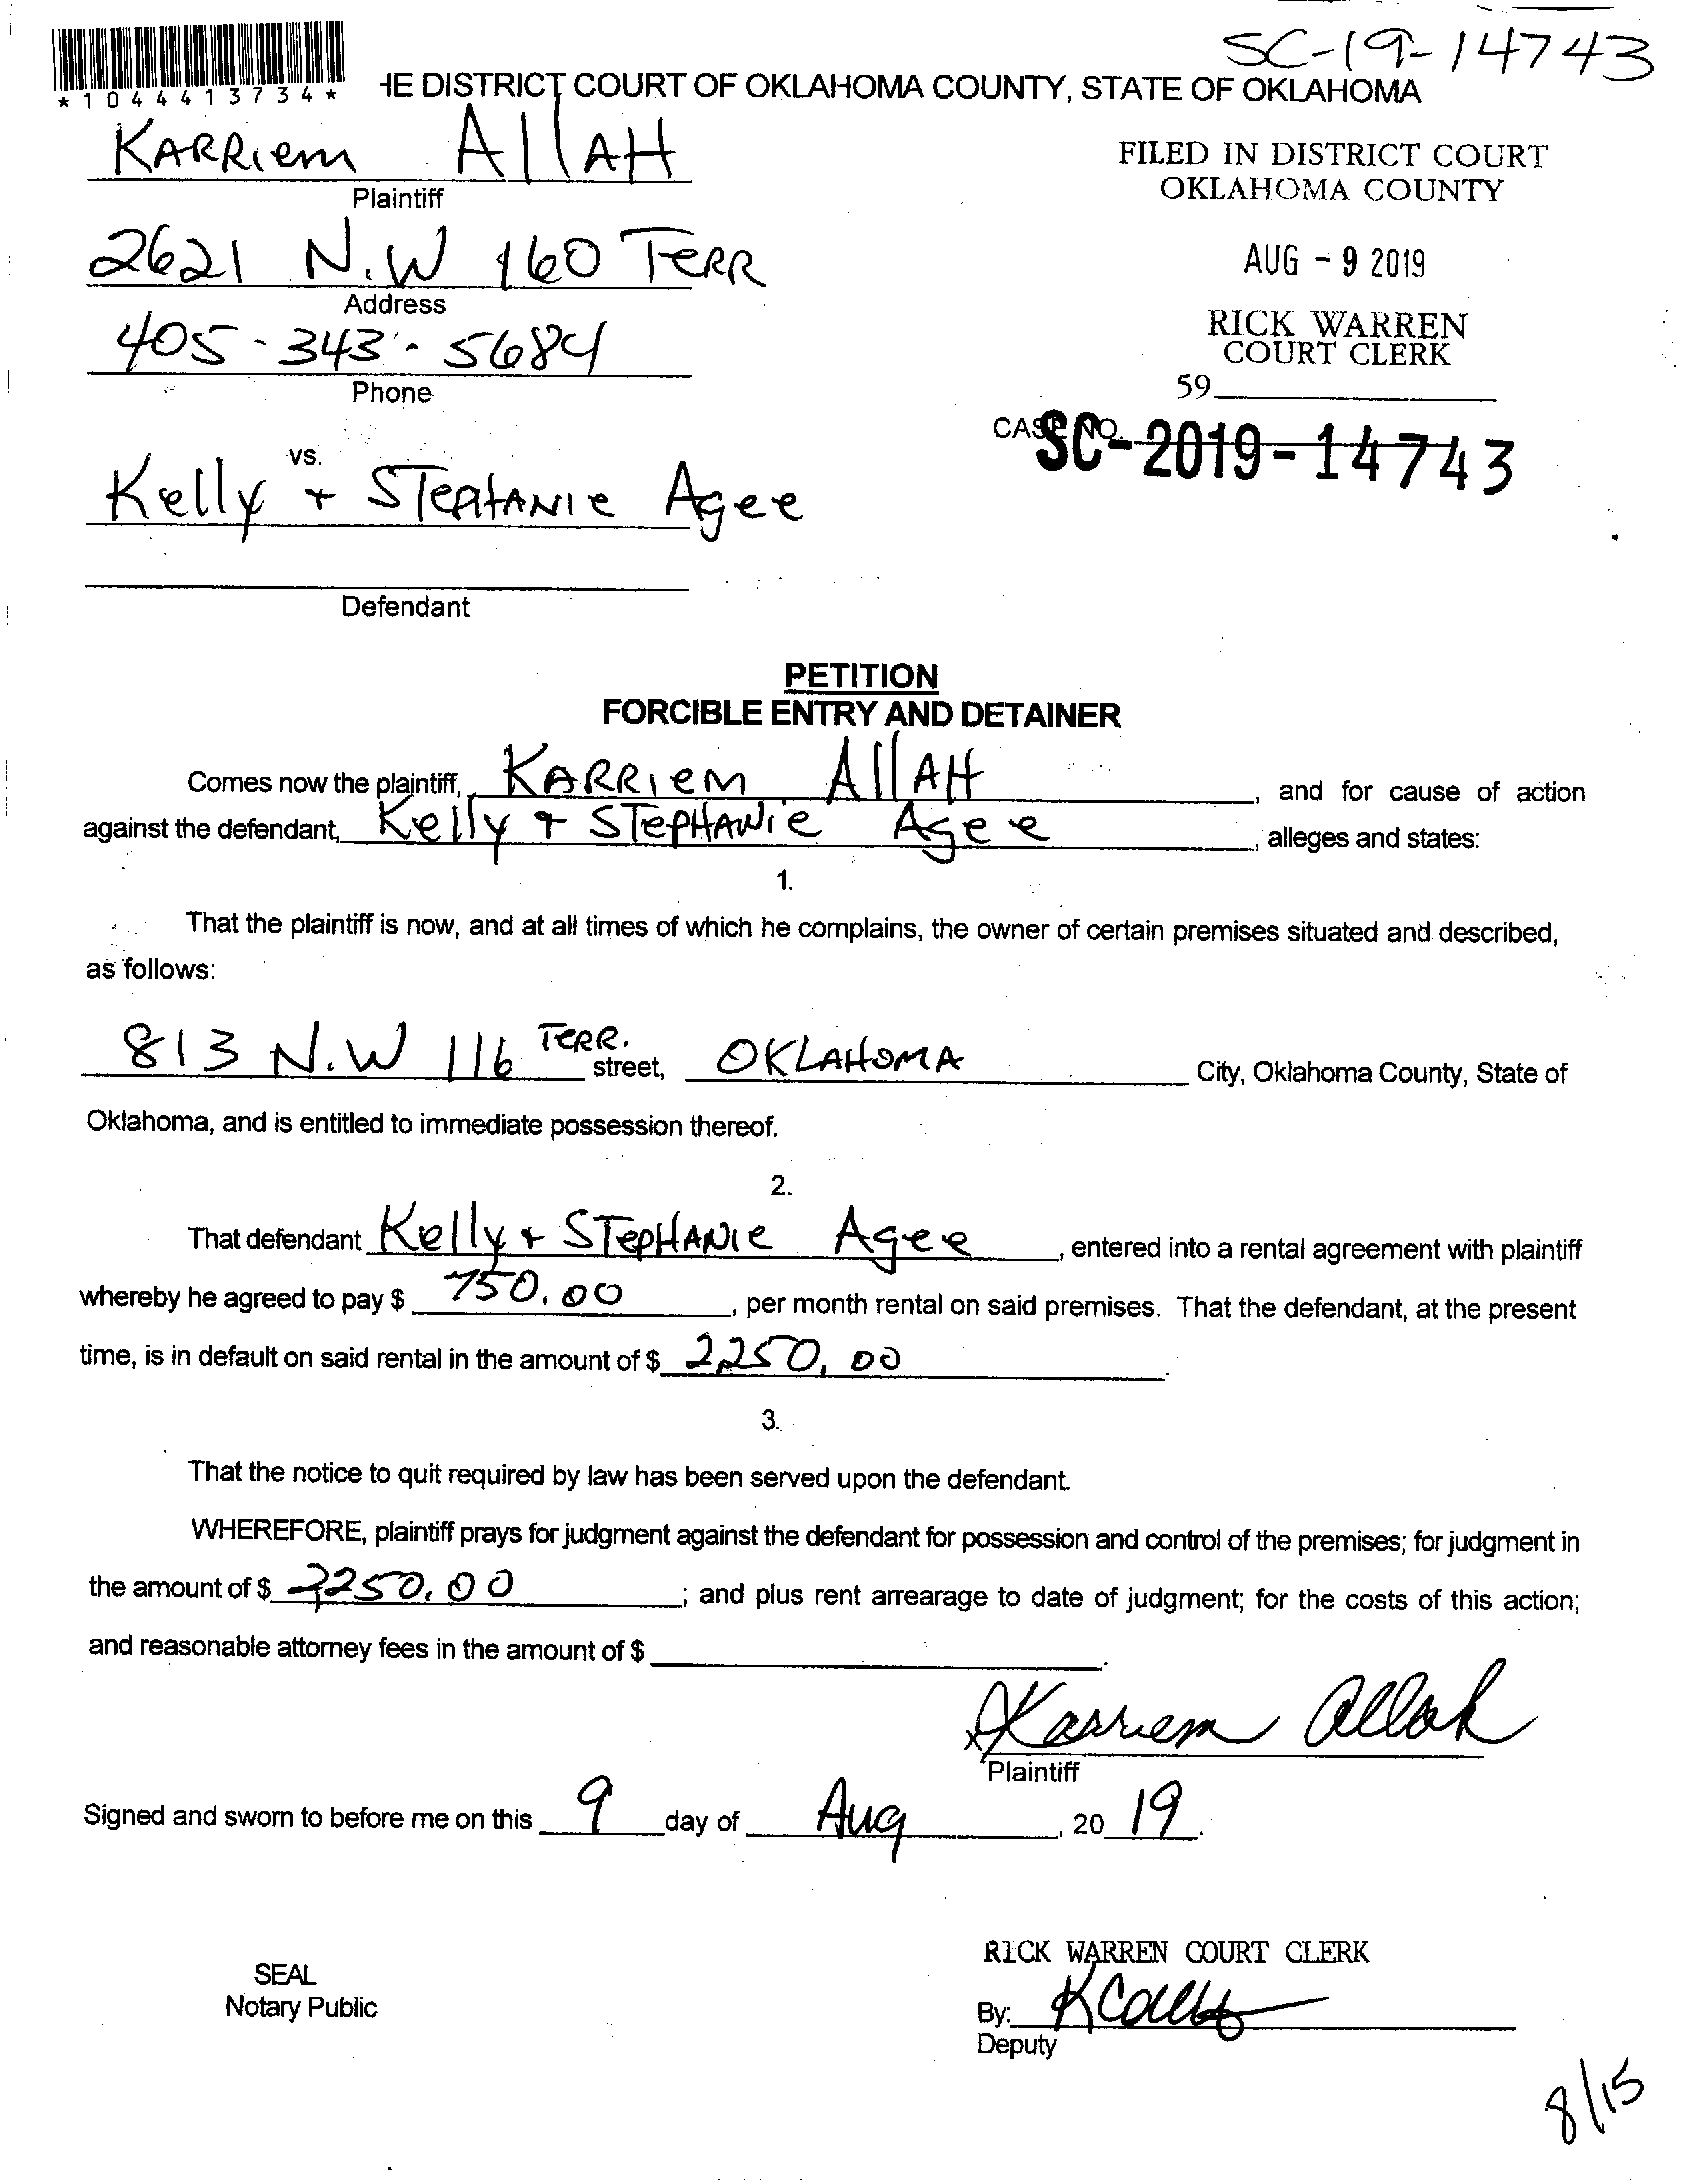 SC-19-14743
*1044413734*
HE DISTRICT COURT OF OKLAHOMA COUNTY, STATE OF OKLAHOMA
KARRIem AllAH
Plaintiff
FILED IN DISTRICT COURT
OKLAHOMA COUNTY
2621 N.W 160 TeRR
Address
AUG - 9 2019
405-343-5684
Phone
RICK WARREN
COURT CLERK
59
CASE NO. SC-2019-14743
vs.
Kelly + STepHANIe Agee
Defendant
PETITION
FORCIBLE ENTRY AND DETAINER
Comes now the plaintiff, KARRIeM AllAH, and for cause of action
against the defendant, Kelly + STepHANie Agee, alleges and states:
1.
That the plaintiff is now, and at all times of which he complains, the owner of certain premises situated and described,
as follows:
813 N.W 116 TeRR. street, OKLAHOMA City, Oklahoma County, State of
Oklahoma, and is entitled to immediate possession thereof.
2.
That defendant Kelly + STepHANIe Agee, entered into a rental agreement with plaintiff
whereby he agreed to pay $ 750.00, per month rental on said premises. That the defendant, at the present
time, is in default on said rental in the amount of $ 2250.00
3.
That the notice to quit required by law has been served upon the defendant.
WHEREFORE, plaintiff prays for judgment against the defendant for possession and control of the premises; for judgment in
the amount of $ 2250.00; and plus rent arrearage to date of judgment; for the costs of this action;
and reasonable attorney fees in the amount of $
x Karriem Allah
Plaintiff
Signed and sworn to before me on this 9 day of Aug, 20 19.
SEAL
Notary Public
RICK WARREN COURT CLERK
By:
Deputy
8/15